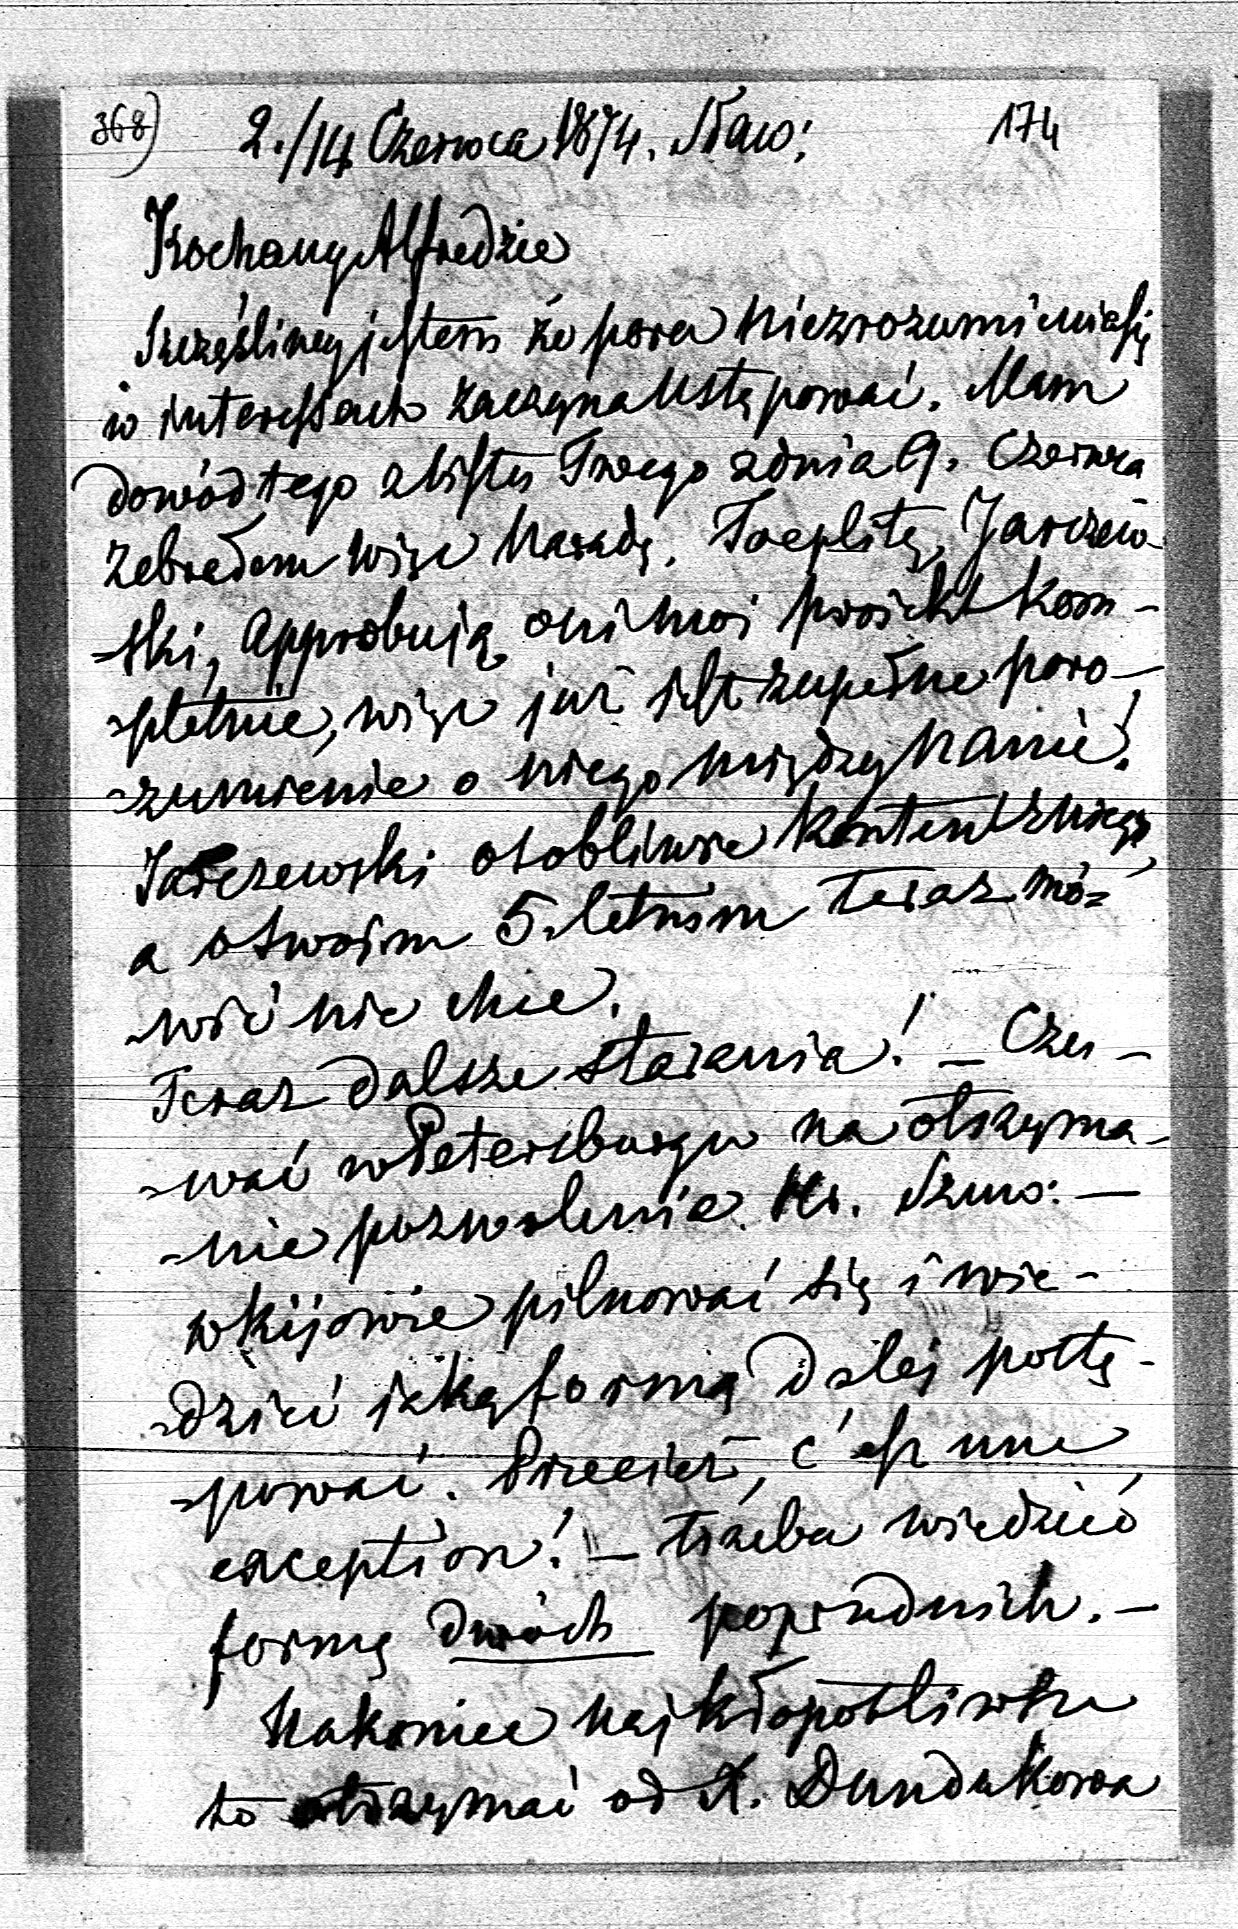 368) 2./14 Czerwca 1874. Staw: 174
Kochany Alfredzie
Szczęśliwy jestem że pora niezrozumienia się
w interessach zaczyna ustępować. Mam
dowód tego z listu Twego z dnia 9. Czerwca
Zebrałem więc naradę. Toeplitz, Jarczew-
-ski, approbują oni mój projekt kom-
-pletnie, więc już jest zupełne poro-
-zumienie o niego między nami!
Jarczewski osobliwie kontent z niego
a o twoim 5.letnim teraz mó-
-wić nie chce.
Teraz dalsze starania! – Czu-
-wać w Petersburgu na otrzyma-
-nie pozwolenia. Hr. Szuw: –
w Kijowie pilnować się i wie-
-dzieć jaką formą dalej postę-
-pować. Przecież, c'est une
exception! – trzeba wiedzieć
formę dwóch poprzednich. –
Nakoniec najkłopotliwsze
to otrzymać od X. Dundukowa